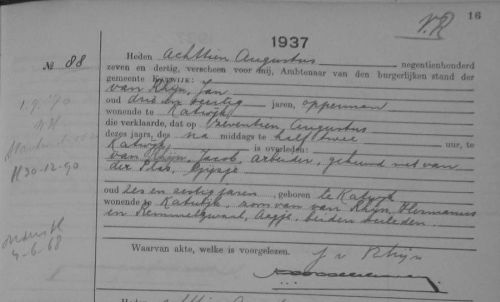 v.R
16
1937
No 88
Heden achttien Augustus negentienhonderd
zeven en dertig, verscheen voor mij, Ambtenaar van den burgerlijken stand der
gemeente KATWIJK:
van Rhijn, Jan
oud drie en veertig jaren, opperman
wonende te Katwijk
die verklaarde, dat op zeventien Augustus
dezes jaars, des na middags te half twee uur, te
Katwijk is overleden:
van Rhijn, Jacob, arbeider, gehuwd met van
der Plas,
oud zes en zestig jaren, geboren te Katwijk
wonende te Katwijk, zoon van van Rhijn, Hermanus
en Remmelzwaal, Aagje, beiden overleden.
Waarvan akte, welke is voorgelezen. J v Rhijn
1.9.
30-12-90
4-6-68
Heden achttien Augustus